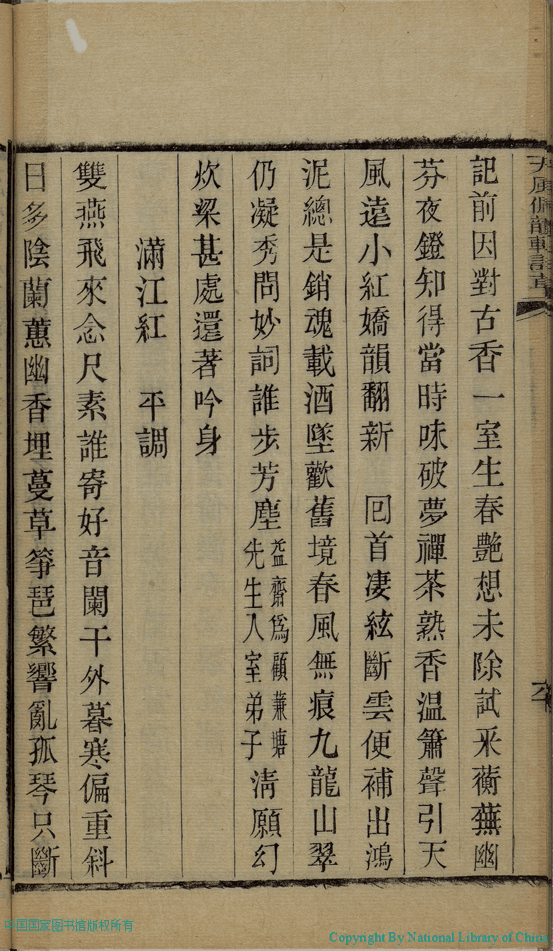 記前因對古香一室生春艷想未除試采蘅蕪幽
芬夜鐙知得當時味破夢禪茶熟香温簫聲引天
風遠小紅嬌韻翻新　回首凄絃斷雲便補出鴻
泥總是銷魂載酒墜歡舊境春風無痕九龍山翠
仍凝秀問妙詞誰步芳塵
益齋爲顧蒹塘
先生入室弟子
清願幻
炊粱甚處還著吟身
滿江紅　平調
雙燕飛來念尺素誰寄好音闌干外暮寒偏重斜
日多陰蘭蕙幽香埋蔓草箏琶繁響亂孤琴只斷
中国国家图书馆版权所有
Copyright By National Library of China